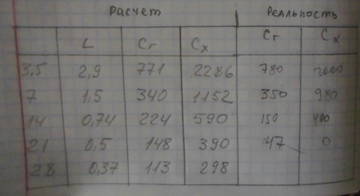 Расчет Реальность
L Cг Cх Cг Cх
3,5 2,9 771 2286 780 2000
7 1,5 340 1152 350 980
14 0,74 224 590 150 400
21 0,5 148 390 47 0
28 0,37 113 298